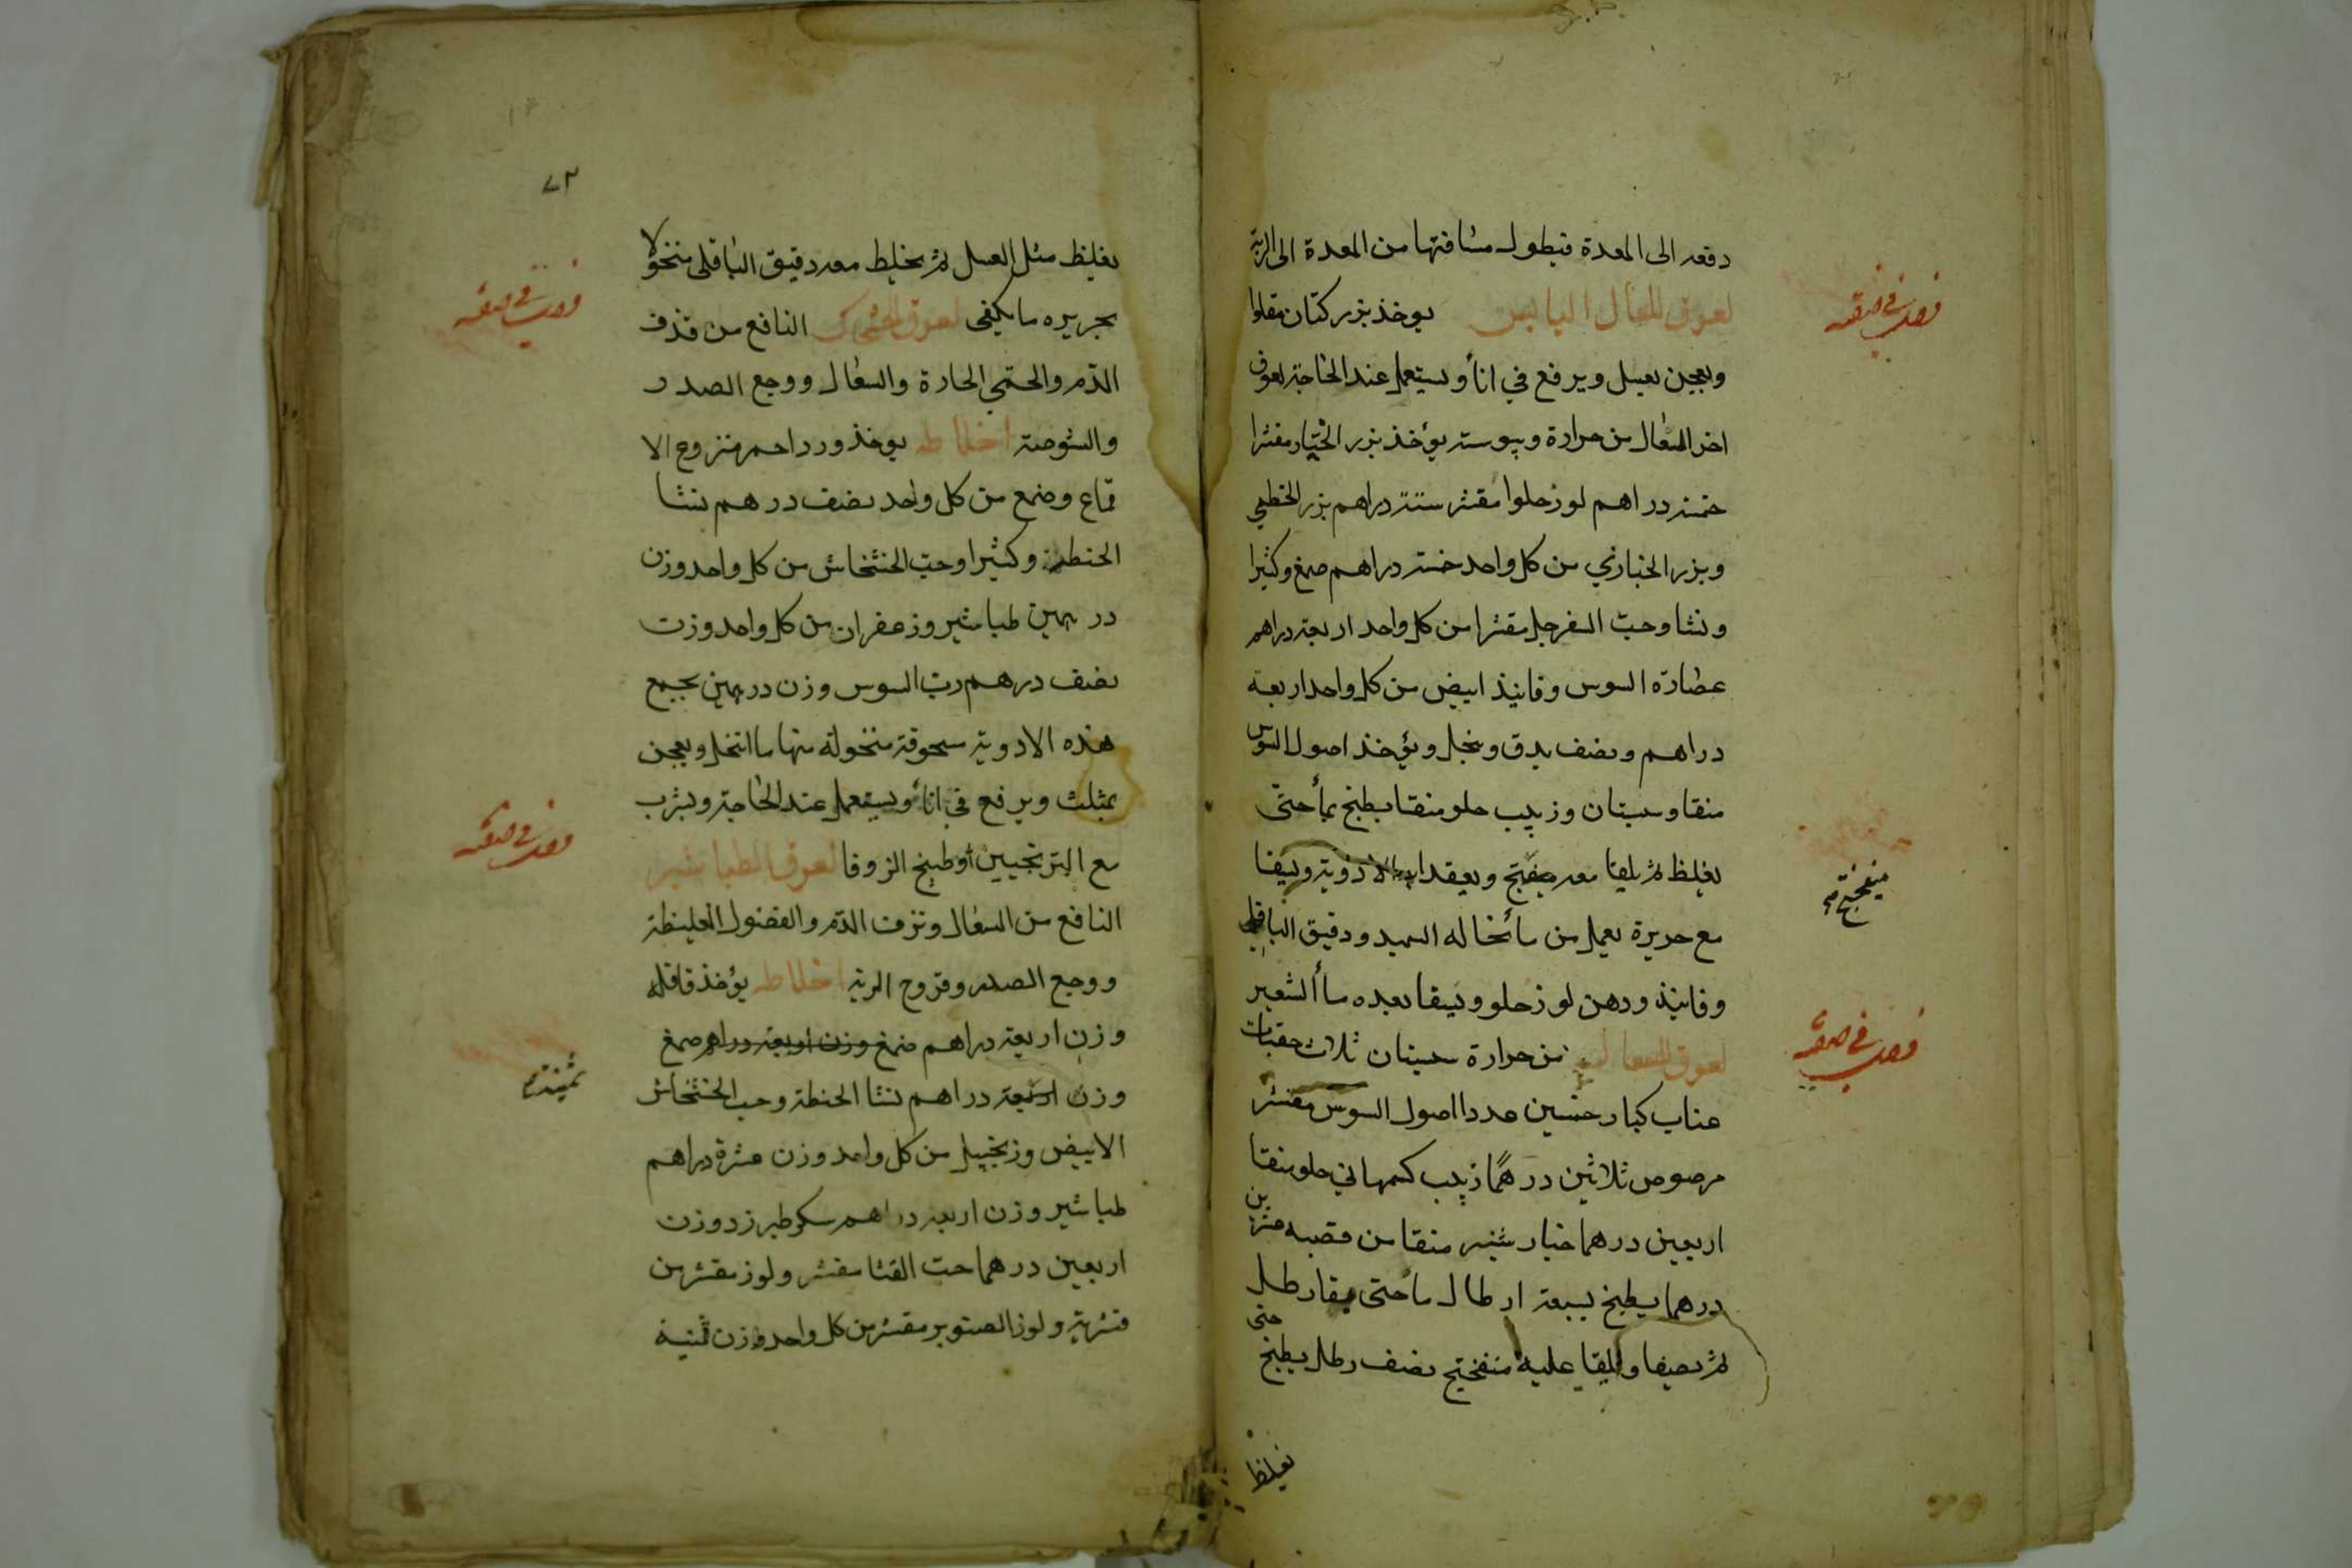 دفعه الى المعدة فيطول مسافتها من المعدة الى الرية
لعوق للسعال اليابس يوخذ بزر كتان مقلوا
ويعجن بعسل ويرفع في اناء ويستعمل عند الحاجة لعوق
اخر للسعال من حرارة ويبوسة يؤخذ بزر الخيار مقشرا
خمسة دراهم لوز حلوا مقشر ستة دراهم بزر الخطمي
وبزر الخبازي من كل واحد خمسة دراهم صمغ وكثيرا
ونشا وحب السفرجل مقشرا من كل واحد اربعة دراهم
عصارة السوس وفانيذ ابيض من كل واحد اربعة
دراهم ونصف يدق وينخل ويؤخذ اصول السوس
منقا وسبستان وزبيب حلو منقا يطبخ بماء حتى
يغلظ ثم يلقا معه ميفختج ويعقد به الادوية ويسقا
مع حريرة يعمل من ماء نخاله السميد ودقيق الباقلي
وفانيذ ودهن لوز حلو ويسقا بعده ماء الشعير
لعوق للسعال من حرارة سبستان ثلاث حفنات
عناب كبار خمسين عددا اصول السوس مقشر
مرصوص ثلاثين درهما زبيب كشمهاني حلو منقا
اربعين درهما خيار شنبر منقا من قصبه عشرين
درهما يطبخ بسبعة ارطال ماء حتى يبقا رطل
ثم يصفا ويلقا عليه منفختج نصف رطل يطبخ حتى
يغلظ
ميفختج
٧٣
يغليظ مثل العسل ثم يخليط معه دقيق الباقلى منخولا
بحريره ما يكفى لعوق الخشخاش النافع من قذف
الدم والحمى الحارة والسعال ووجع الصدر
والشوصة اخلاطه يوخذ ورد احمر منزوع الا
قماع وصمع من كل واحد نصف درهم نشا
الحنطة وكثيرا وحب الخشخاش من كل واحد وزن
درهمين طباشير وزعفران من كل واحد وزن
نصف درهم رب السوس وزن درهمين يجمع
هذه الادوية مسحوقة منخولة منها ما انتخل ويعجن
بمثلث ويرفع في اناء ويستعمل عند الحاجة ويشرب
مع الترنجبين أو طبيخ الزوفا لعوق الطباشير
النافع من السعال ونزف الدم والفضول الغليظة
ووجع الصدر وقروح الرية اخلاطه يؤخذ قاقلة
وزن اربعة دراهم صمغ وزن اربعة دراهم صمغ
وزن اربعة دراهم نشا الحنطة وحب الخشخاش
الابيض وزنجبيل من كل واحد وزن عشرة دراهم
طباشير وزن اربعة دراهم سكر طبرزد وزن
اربعين درهما حب القثا مقشر ولوز مقشر من
قشريه ولوز الصنوبر مقشر من كل واحد وزن ثمنية